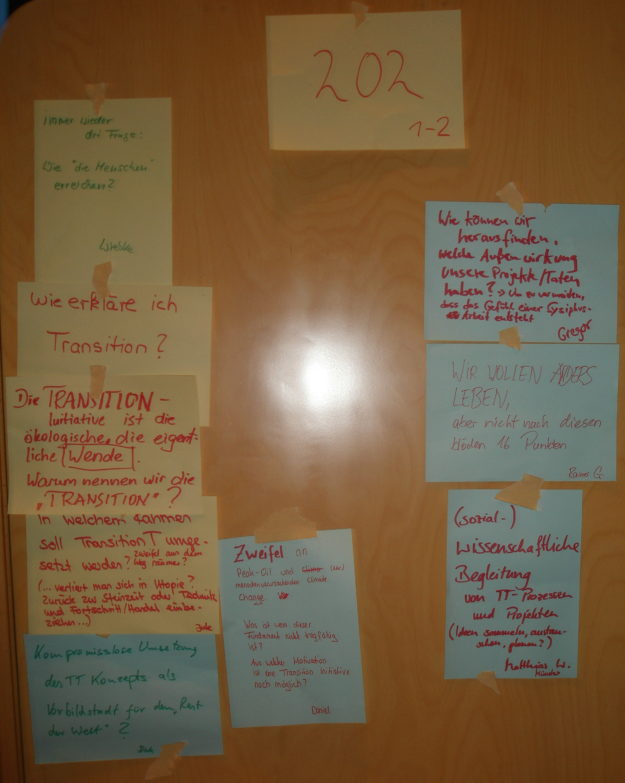 202
1-2
Immer wieder
die Frage:
Wie "die Menschen"
erreichen?
Wie erkläre ich
Transition?
Die TRANSITION-
Initiative ist die
ökologische, die eigent-
liche Wende.
Warum nennen wir die
"TRANSITION"?
In welchem Rahmen
soll Transition T umge-
setzt werden? Zweifel aus dem
Weg räumen?
(... verliert man sich in Utopie?
Zurück zur Steinzeit oder Technik
und Fortschritt/Handel einbe-
ziehen...)
Kompromisslose Umsetzung
des TT Konzepts als
Vorbildstadt für den "Rest
der Welt"?
Zweifel an
Peak-Oil und
menschenverursachter Climate
Change
Was ist wenn dieser
Fundament nicht tragfähig
ist?
Aus welcher Motivation
ist eine Transition Initiative
noch möglich?
Daniel
Wie können wir
herausfinden,
welche Außenwirkung
unsere Projekte/Taten
haben? → Um zu vermeiden,
dass das Gefühl einer Sysiphus-
Arbeit entsteht
Gregor
WIR WOLLEN ANDERS
LEBEN,
aber nicht nach diesen
blöden 16 Punkten
Rainer G.
(sozial-)
wissenschaftliche
Begleitung
von TT-Prozessen
und Projekten
(Ideen sammeln, austau-
schen, planen?)
Matthias W.
Münster